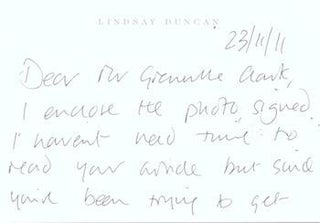 LINDSAY DUNCAN
23/11/11
Dear Mr Granville Clark,
I enclose the photo, signed.
I haven't had time to
read your article but since
you'd been trying to get